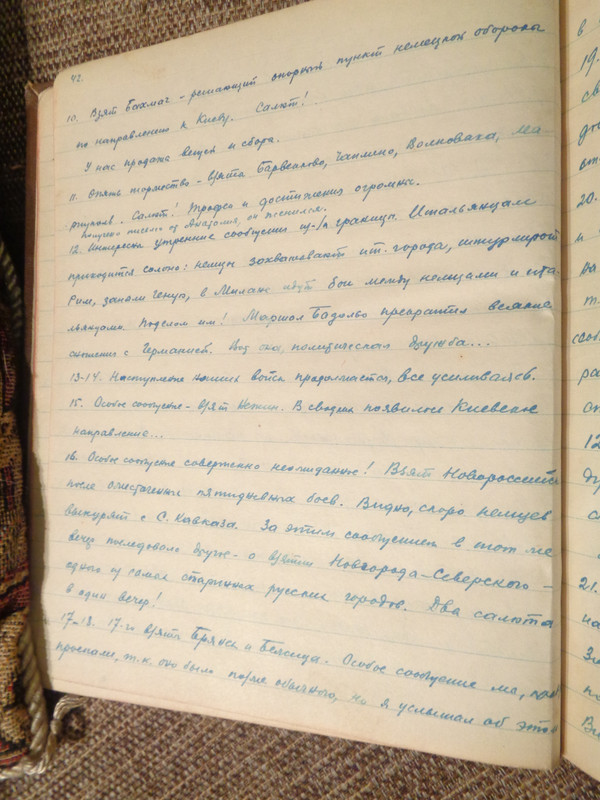 42.
10. Взят Бахмач – решающий опорный пункт немецкой обороны
по направлению к Киеву. Салют!
У нас продажа вещей и сбора.
11. Опять торжество – взяты Барвенково, Чаплино, Волноваха, Ма-
риуполь. Салют! Трофеи и достижения огромны.
Получено письмо от Анатолия, он женился.
12. Интересны утренние сообщения из-за границы. Итальянцам
приходится солоно: немцы захватывают ит. города, штурмуют
Рим, заняли Геную, в Милане идут бои между немцами и ита-
льянцами. Поделом им! Маршал Бадольо прекратил всякие
сношения с Германией. Вот она, политическая дружба...
13-14. Наступление наших войск продолжается, все усиливаясь.
15. Особое сообщение – взят Нежин. В сводках появилось Киевское
направление...
16. Особое сообщение совершенно неожиданное! Взят Новороссийск
после ожесточенных пятидневных боев. Видно, скоро немцев
выкурят с С. Кавказа. За этим сообщением в тот же
вечер последовало другое – о взятии Новгорода-Северского –
одного из самых старинных русских городов. Два салюта
в один вечер!
17-18. 17-го взяты Брянск и Бежица. Особое сообщение мы,
проспали, т.к. оно было позже обычного, но я услышал об этом
в
19.
св
20.
и
т.
сооб
ра
12
21.
на